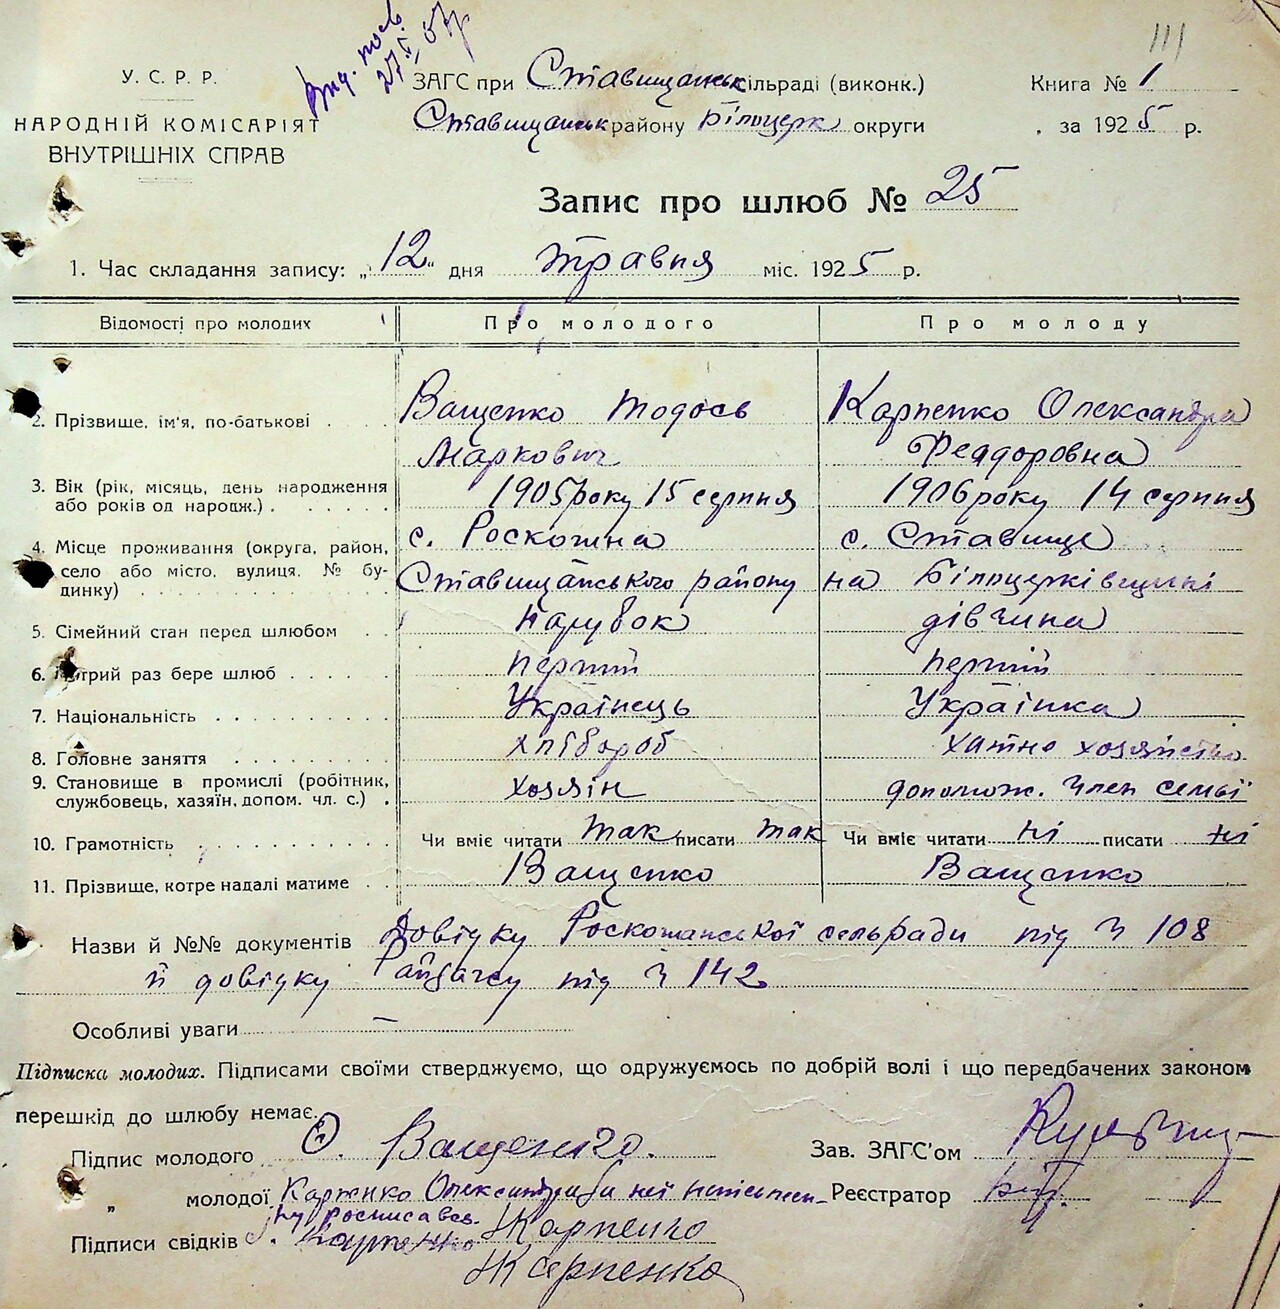 111
У. С. Р. Р.
НАРОДНІЙ КОМІСАРІЯТ
ВНУТРІШНІХ СПРАВ
27/I
ЗАГС при Ставищанськ сільраді (виконк.)
Ставищанськ району Білоцерк округи
Книга № 1
за 1925 р.
Запис про шлюб № 25
1. Час складання запису: „12" дня травня міс. 1925 р.
Відомості про молодих Про молодого Про молоду
2. Прізвище, ім'я, по-батькові Ващенко Тодось Карпенко Олександра
Маркович Феадоровна
3. Вік (рік, місяць, день народження або років од народж.) 1905 року 15 серпня 1906 року 14 серпня
4. Місце проживання (округа, район, село або місто, вулиця, № будинку) с. Роскошна с. Ставище
Ставищанського району на Білоцерківщині
5. Сімейний стан перед шлюбом парубок дівчина
6. Котрий раз бере шлюб перший перший
7. Національність Українець Українка
8. Головне заняття хлібороб хатнє хозяйство
9. Становище в промислі (робітник, службовець, хазяїн, допом. чл. с.) хозяін допомож. член семьї
10. Грамотність Чи вміє читати так писати так Чи вміє читати ні писати ні
11. Прізвище, котре надалі матиме Ващенко Ващенко
Назви й №№ документів Довідку Роскошанської сельради під Ч 108
й довідку Райзагсу під Ч 142
Особливі уваги –
Підписка молодих. Підписами своїми стверджуємо, що одружуємось по добрій волі і що передбачених законом
перешкід до шлюбу немає.
Підпис молодого Ващенко. Зав. ЗАГС'ом
„ молодої Карпенко Олександра а за неї неписьмен- Реєстратор
ну росписавсь.
Підписи свідків Карпенко Карпенко
Карпенко